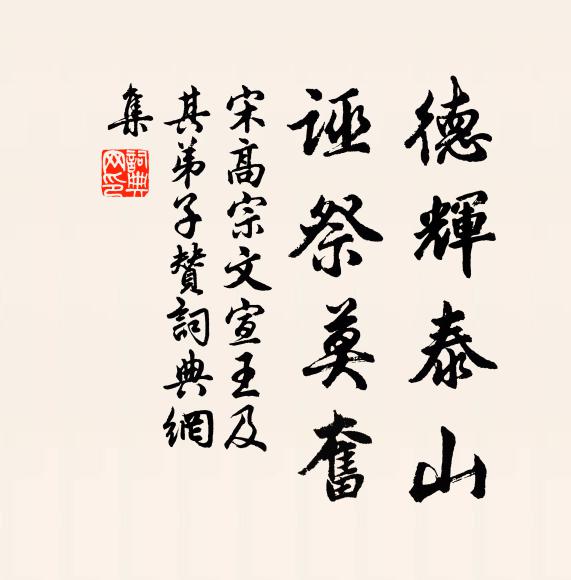 德輝泰山
誣祭莫奮
宋高宗文宣王及
其弟子贊詞典網
集
詞典网印